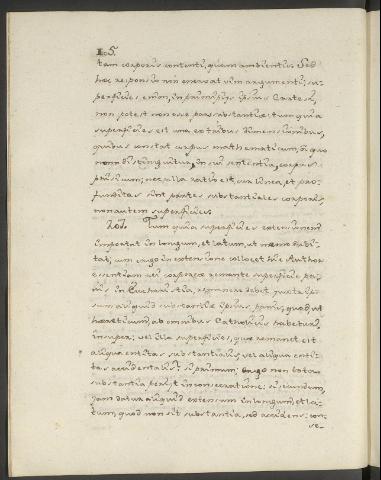 105.
tam corporis contenti, quam ambientis. Sed
hęc responsio non enervat vim argumenti; su-
perficies enim, in principijs ipsius Cartesii,
non potest non esse pars substantiæ: tum quia
superficies est una ex tribus dimensionibus,
quibus constat corpus mathematicum, à quo
non distinguitur, in sui sententia, corpus
phisicum; nec ulla ratio est, cur linea, et pro-
funditas sint partes substantiales corporis
non autem superficies.
Tum quia superficies extensionem
importat in longum, et latum, ut nemo dubi-
tat; cum ergo in extensione collocet hic Author
essentiam rei corporeæ remanente superficie pa-
nis in Eucharistia, remanere debet juxta ip-
sum aliquid substantiæ ipsius panis, quod ut
hæreticum, ab omnibus Catholicis habetur.
Insuper; vel illa superficies, quæ remanet est
aliqua entitas substantialis vel aliqua enti-
tas accidentalis: si primum; ergo non tota
substantia perijt in consecratione; si secundum,
jam datur aliquid extensum in longum, et la-
tum, quod non sit substantia, sed accidens: con-
se-